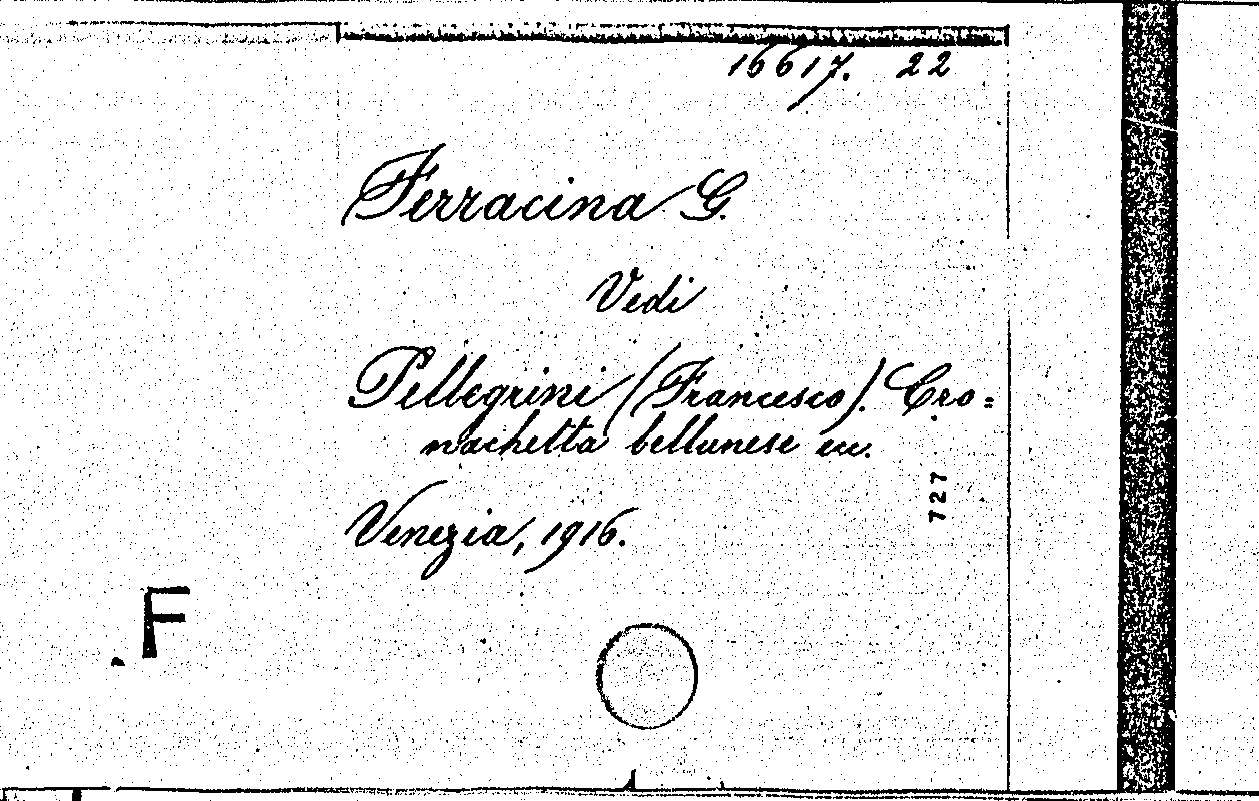 16617. 22
Ferracina G.
Vedi
Pellegrini (Francesco). Cro=
nachetta bellunese ecc.
Venezia, 1916.
727
F